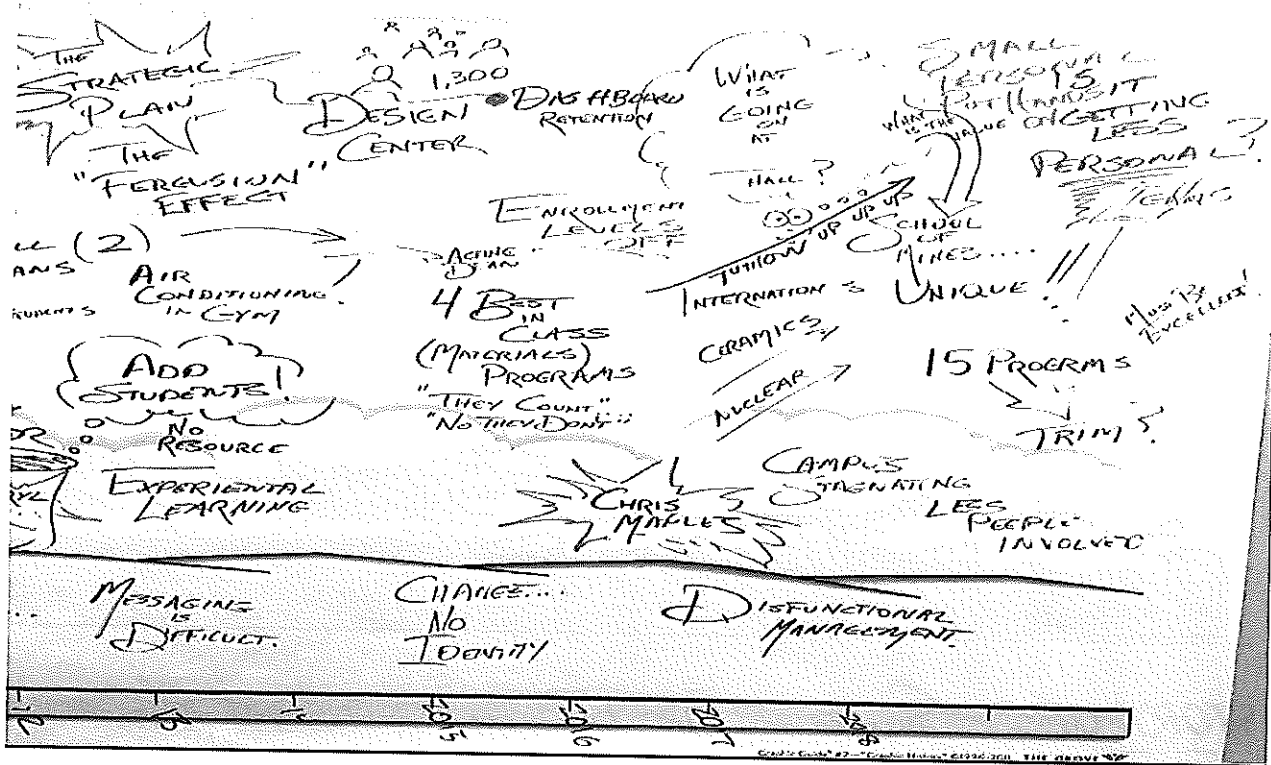 THE
STRATEGIC
PLAN
THE
"FERGUSION"
EFFECT
1,300
DESIGN
CENTER
DASHBOARD
RETENTION
WHAT
IS
GOING
ON
AT
HALL?
SMALL
PERSONAL
WHAT IS THE VALUE OF GETTING
LESS
PERSONAL?
(2)
ANS
AIR
CONDITIONING
IN GYM
ENROLLMENT
LEVELS
OFF
ACTING
DEAN
4 BEST
IN
CLASS
(MATERIALS)
PROGRAMS
"THEY COUNT"
"NO THEY DON'T"
TUITION UP UP UP UP
INTERNATION S
CERAMICS
NUCLEAR
SCHOOL
OF
MINES....
UNIQUE!!
MUST BE
EXCELLENT!
15 PROGRMS
TRIM?
ADD
STUDENTS!
NO
RESOURCE
EXPERIENTAL
LEARNING
CHRIS
MAPLES
CAMPUS
STAGNATING
LESS
PEEPLE
INVOLVED
MESSAGING
IS
DIFFICULT.
CHANGE....
NO
IDENTITY
DISFUNCTIONAL
MANAGEMENT.
2015
2016
2017
2018